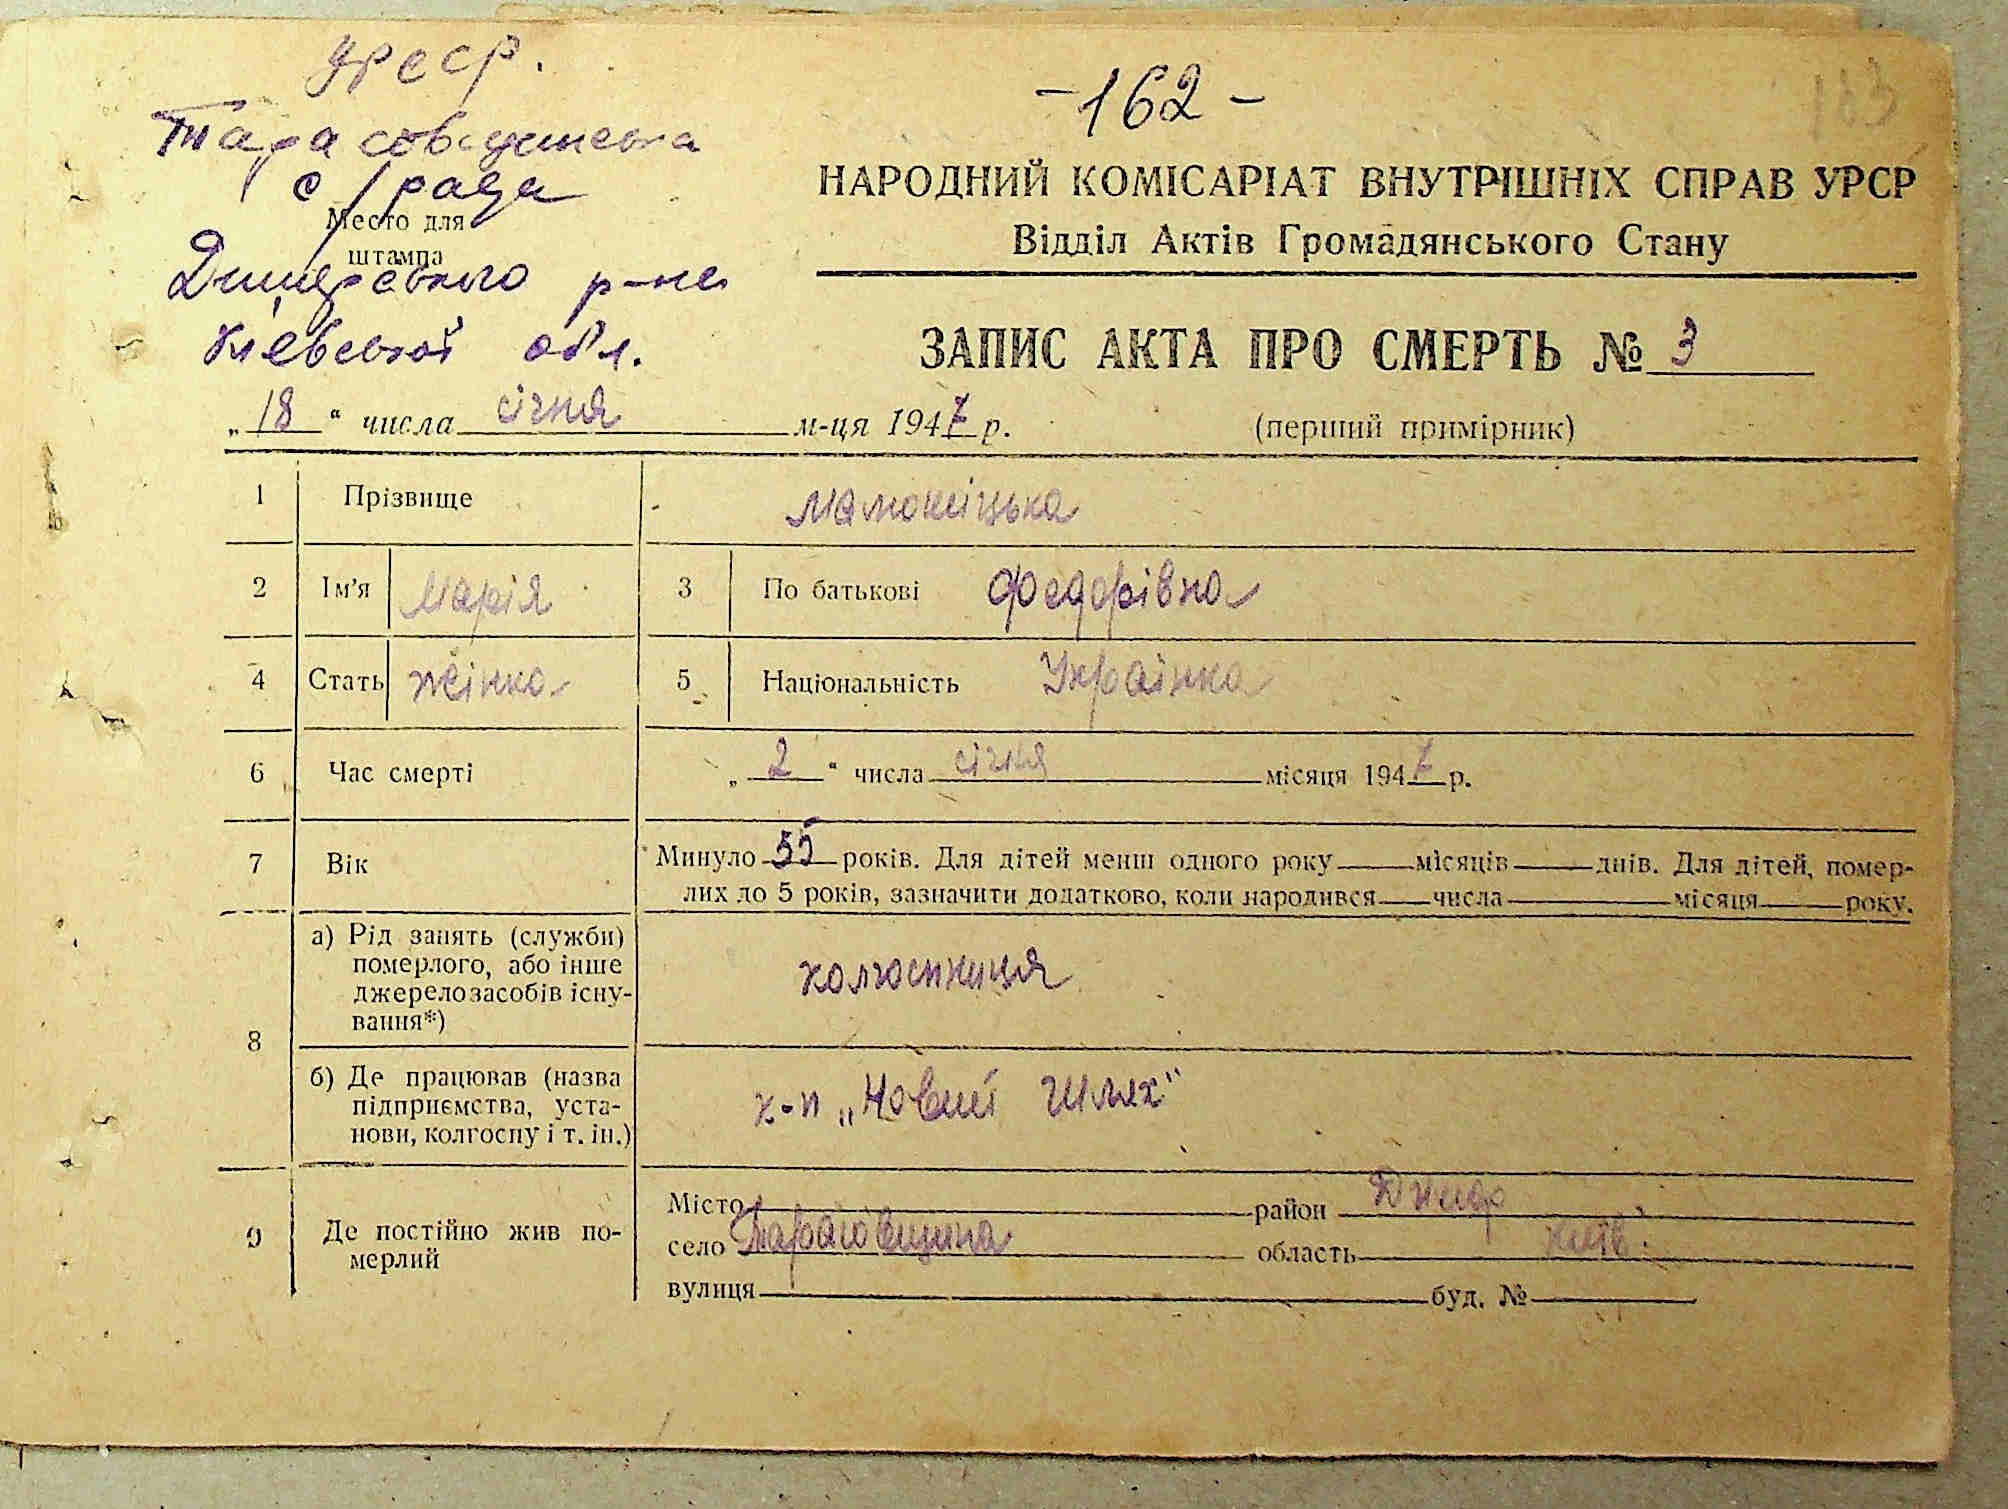 УРСР.
- 162 -
163
Тарасовщинська
с/рада
Место для
штампа
Димерського р-на
Київської обл.
НАРОДНИЙ КОМІСАРІАТ ВНУТРІШНІХ СПРАВ УРСР
Відділ Актів Громадянського Стану
ЗАПИС АКТА ПРО СМЕРТЬ № 3
„18“ числа січня м-ця 1947 р. (перший примірник)
1 Прізвище Мамоніцька
2 Ім'я Марія 3 По батькові Федорівна
4 Стать жінка 5 Національність Українка
6 Час смерті „2“ числа січня місяця 1947 р.
7 Вік Минуло 55 років. Для дітей менш одного року місяців днів. Для дітей, помер-
лих до 5 років, зазначити додатково, коли народився числа місяця року.
8 а) Рід занять (служби)
померлого, або інше
джерело засобів існу-
вання*)
колгоспниця
б) Де працював (назва
підприємства, уста-
нови, колгоспу і т. ін.)
к-п „Новий Шлях"
9 Де постійно жив по-
мерлий
Місто район Димер
село Тарасовщина область Київ.
вулиця буд. №